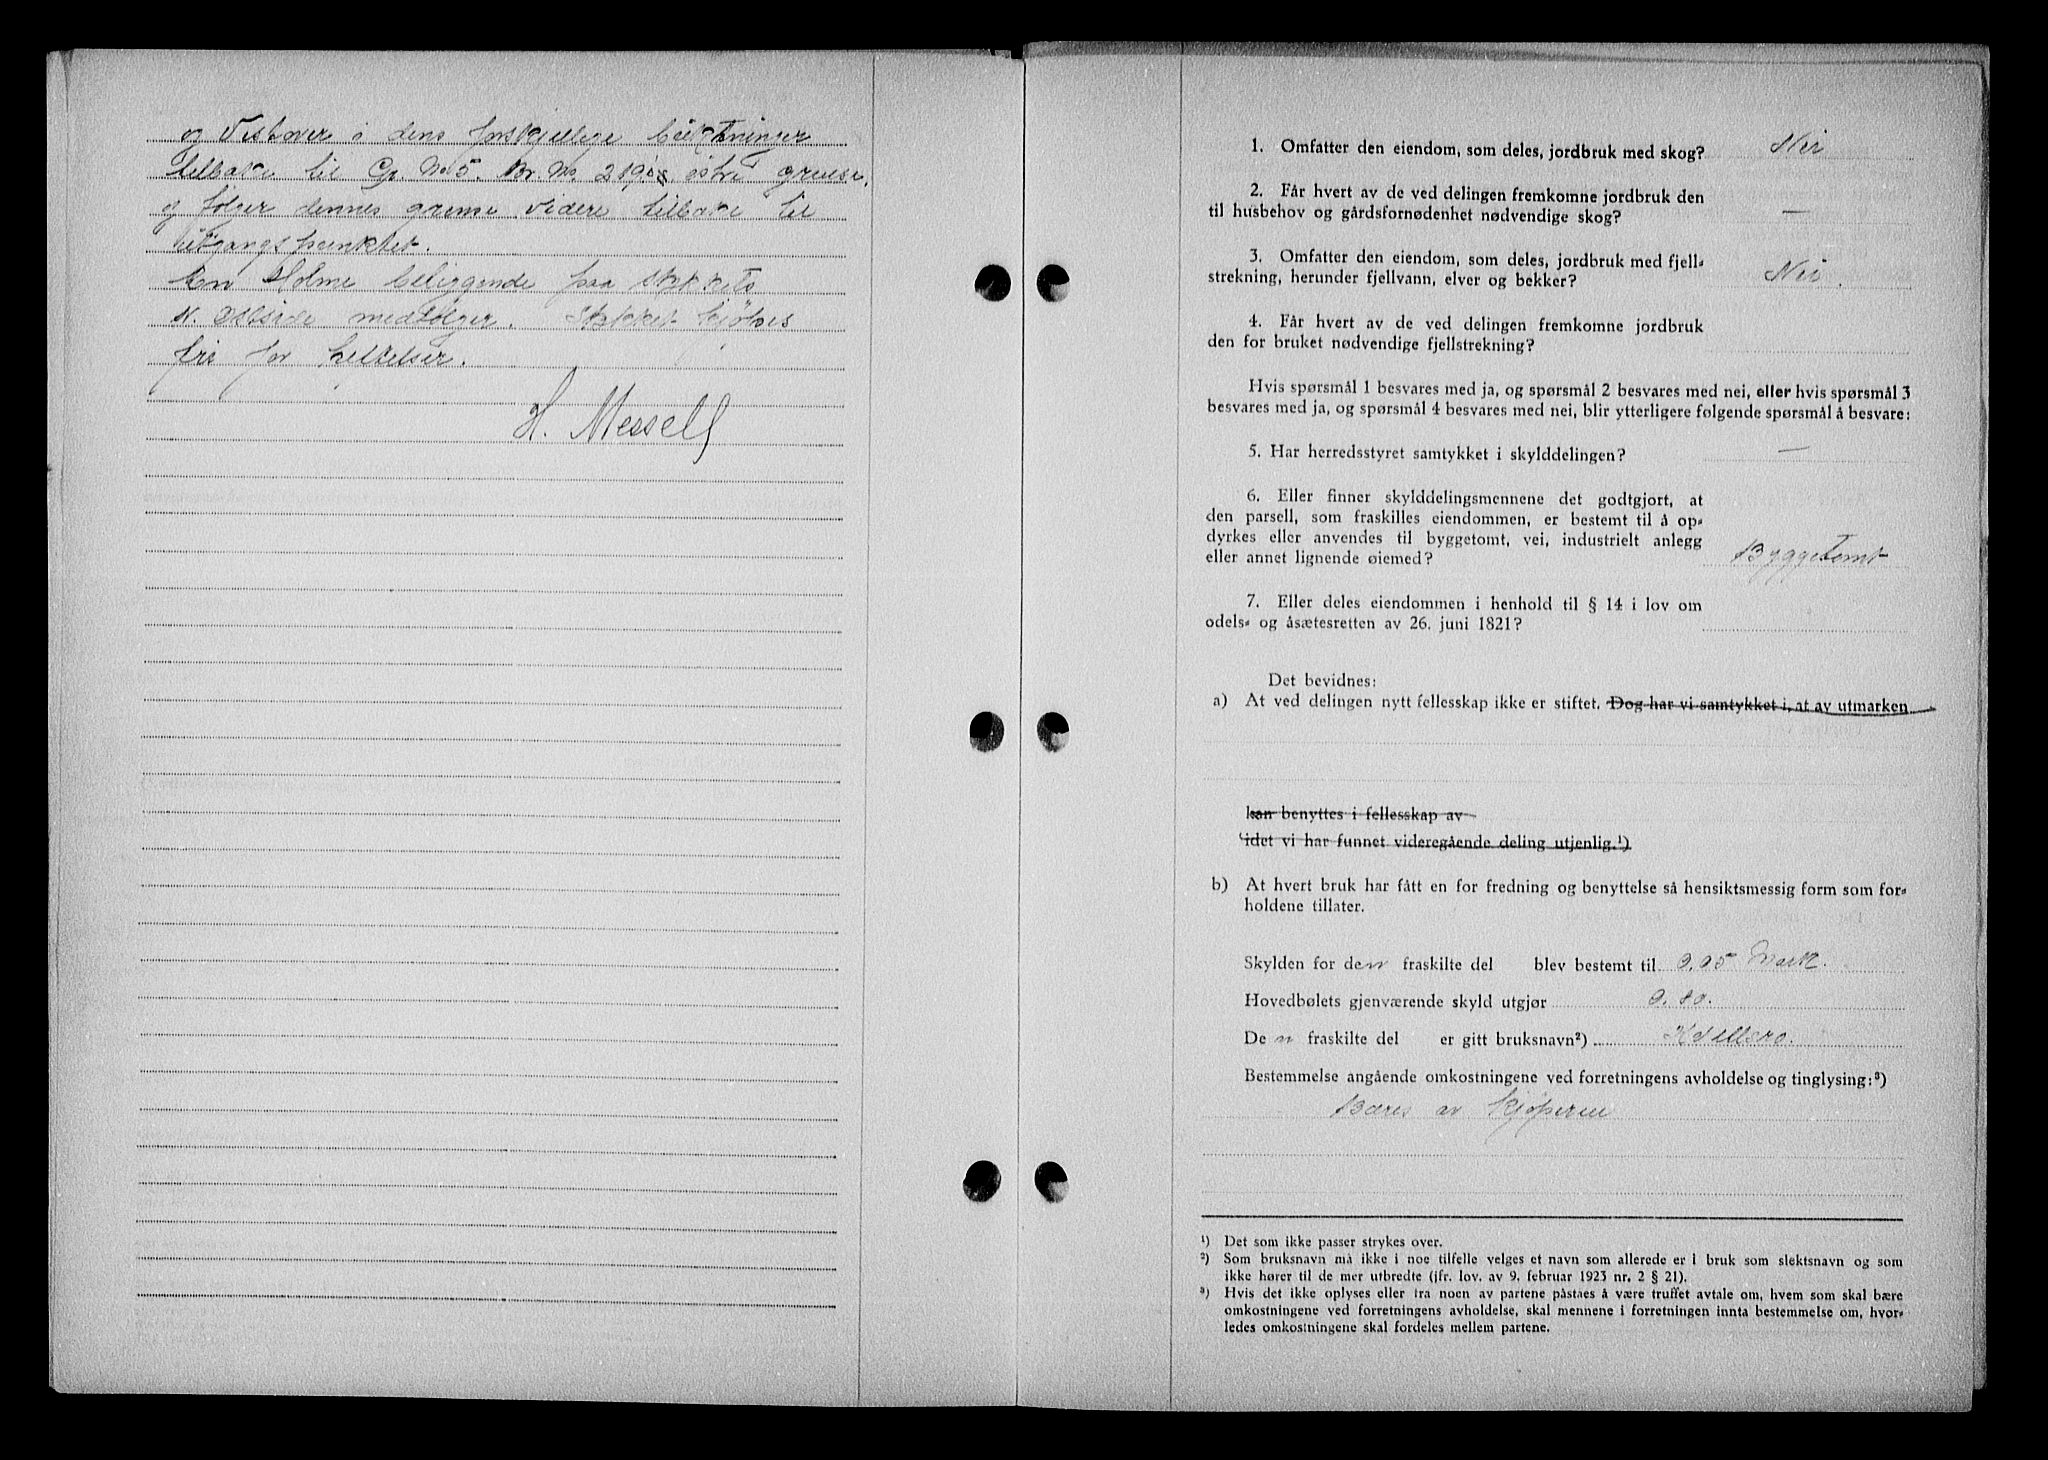 og Vestover i dens forskjellige bugtninger
tilbake til Gr. No 5. Br. No. 219's østre grense,
og følger dennes grense videre tilbake til
Utgangspunktet.
En Holme beliggende paa stykkets
N. Østside medfølger. Stykket kjøbes
fri for heftelser.
H. Messell
1. Omfatter den eiendom, som deles, jordbruk med skog? Nei
2. Får hvert av de ved delingen fremkomne jordbruk den
til husbehov og gårdsfornødenhet nødvendige skog? —
3. Omfatter den eiendom, som deles, jordbruk med fjell-
strekning, herunder fjellvann, elver og bekker? Nei.
4. Får hvert av de ved delingen fremkomne jordbruk
den for bruket nødvendige fjellstrekning?
Hvis spørsmål 1 besvares med ja, og spørsmål 2 besvares med nei, eller hvis spørsmål 3
besvares med ja, og spørsmål 4 besvares med nei, blir ytterligere følgende spørsmål å besvare:
5. Har herredsstyret samtykket i skylddelingen? —
6. Eller finner skylddelingsmennene det godtgjort, at
den parsell, som fraskilles eiendommen, er bestemt til å op-
dyrkes eller anvendes til byggetomt, vei, industrielt anlegg
eller annet lignende øiemed? Byggetomt
7. Eller deles eiendommen i henhold til § 14 i lov om
odels- og åsætesretten av 26. juni 1821?
Det bevidnes:
a) At ved delingen nytt fellesskap ikke er stiftet. Dog har vi samtykket i, at av utmarken
kan benyttes i fellesskap av
idet vi har funnet videregående deling utjenlig.¹)
b) At hvert bruk har fått en for fredning og benyttelse så hensiktsmessig form som for-
holdene tillater.
Skylden for den fraskilte del blev bestemt til 0,05 Mark.
Hovedbølets gjenværende skyld utgjør 0.80.
De n fraskilte del er gitt bruksnavn²)
Bestemmelse angående omkostningene ved forretningens avholdelse og tinglysing:³)
Bæres av kjøperen
¹) Det som ikke passer strykes over.
²) Som bruksnavn må ikke i noe tilfelle velges et navn som allerede er i bruk som slektsnavn og som
ikke hører til de mer utbredte (jfr. lov. av 9. februar 1923 nr. 2 § 21).
³) Hvis det ikke oplyses eller fra noen av partene påståes å være truffet avtale om, hvem som skal bære
omkostningene ved forretningens avholdelse, skal mennene i forretningen innta bestemmelse om, hvor-
ledes omkostningene skal fordeles mellem partene.